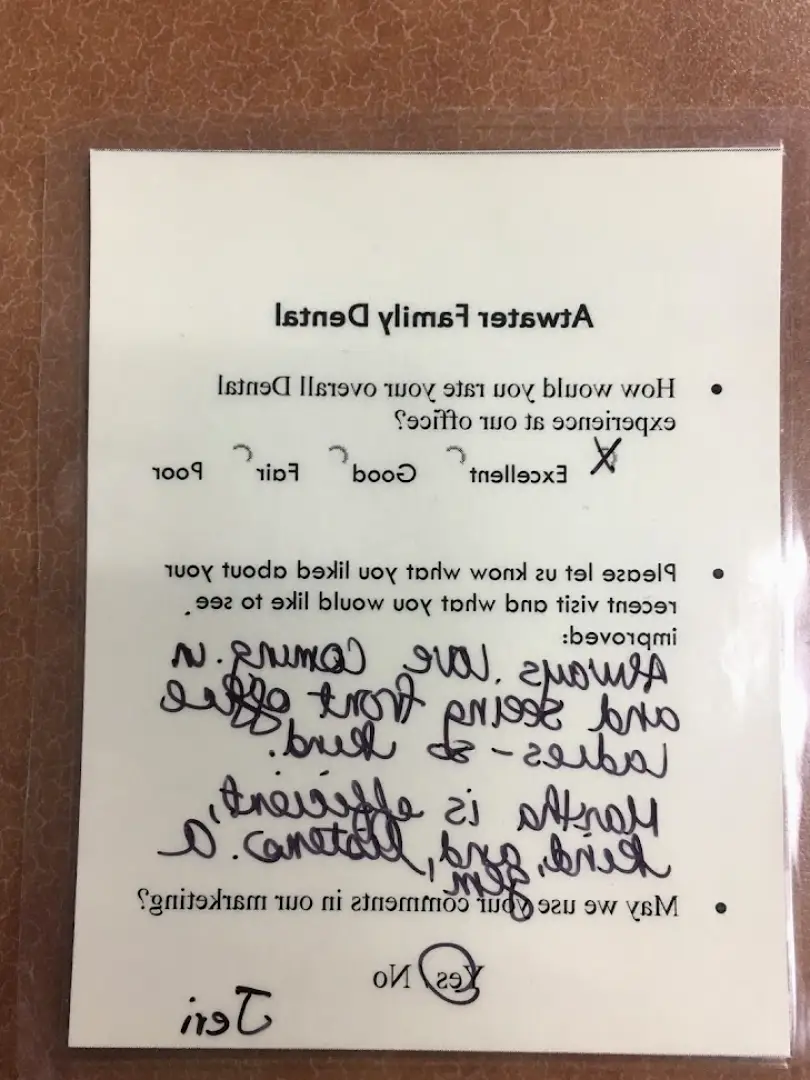 Atwater Family Dental
• How would you rate your overall Dental
experience at our office?
X Excellent Good Fair Poor
• Please let us know what you liked about your
recent visit and what you would like to see
improved:
Always love coming in
and seeing front office
ladies - so kind.
Martha is efficient,
kind, and, listens. A
gem!
• May we use your comments in our marketing?
Yes / No
Jeri